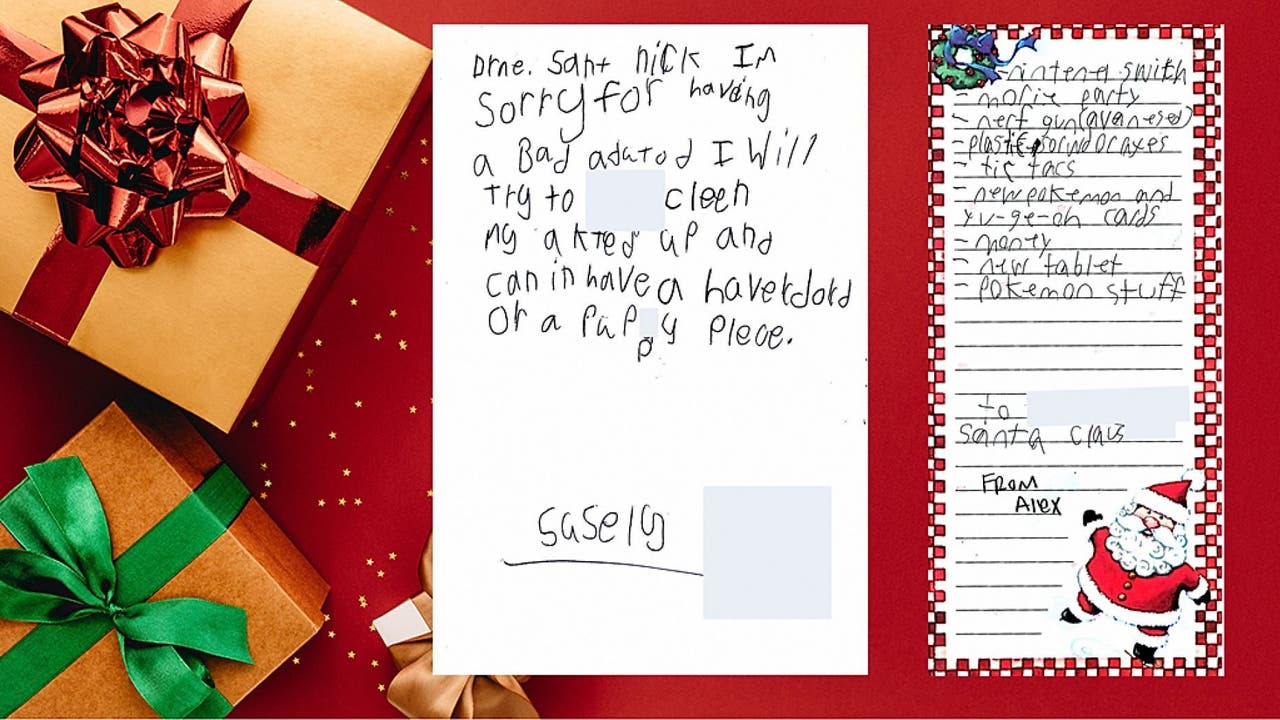 Drne. Sant nick Im
Sorry for having
a Bad adatod I Will
Try to cleen
my akted up and
can in have a haverdord
Or a Pappy Plece.
saselg
- nintend swith
- morie party
- nerf gun
- plastic
- tic tacs
- new pokemon and
yu-ge-oh cards
- money
- new tablet
- pokemon stuff
to
Santa Claus
FROM
Alex